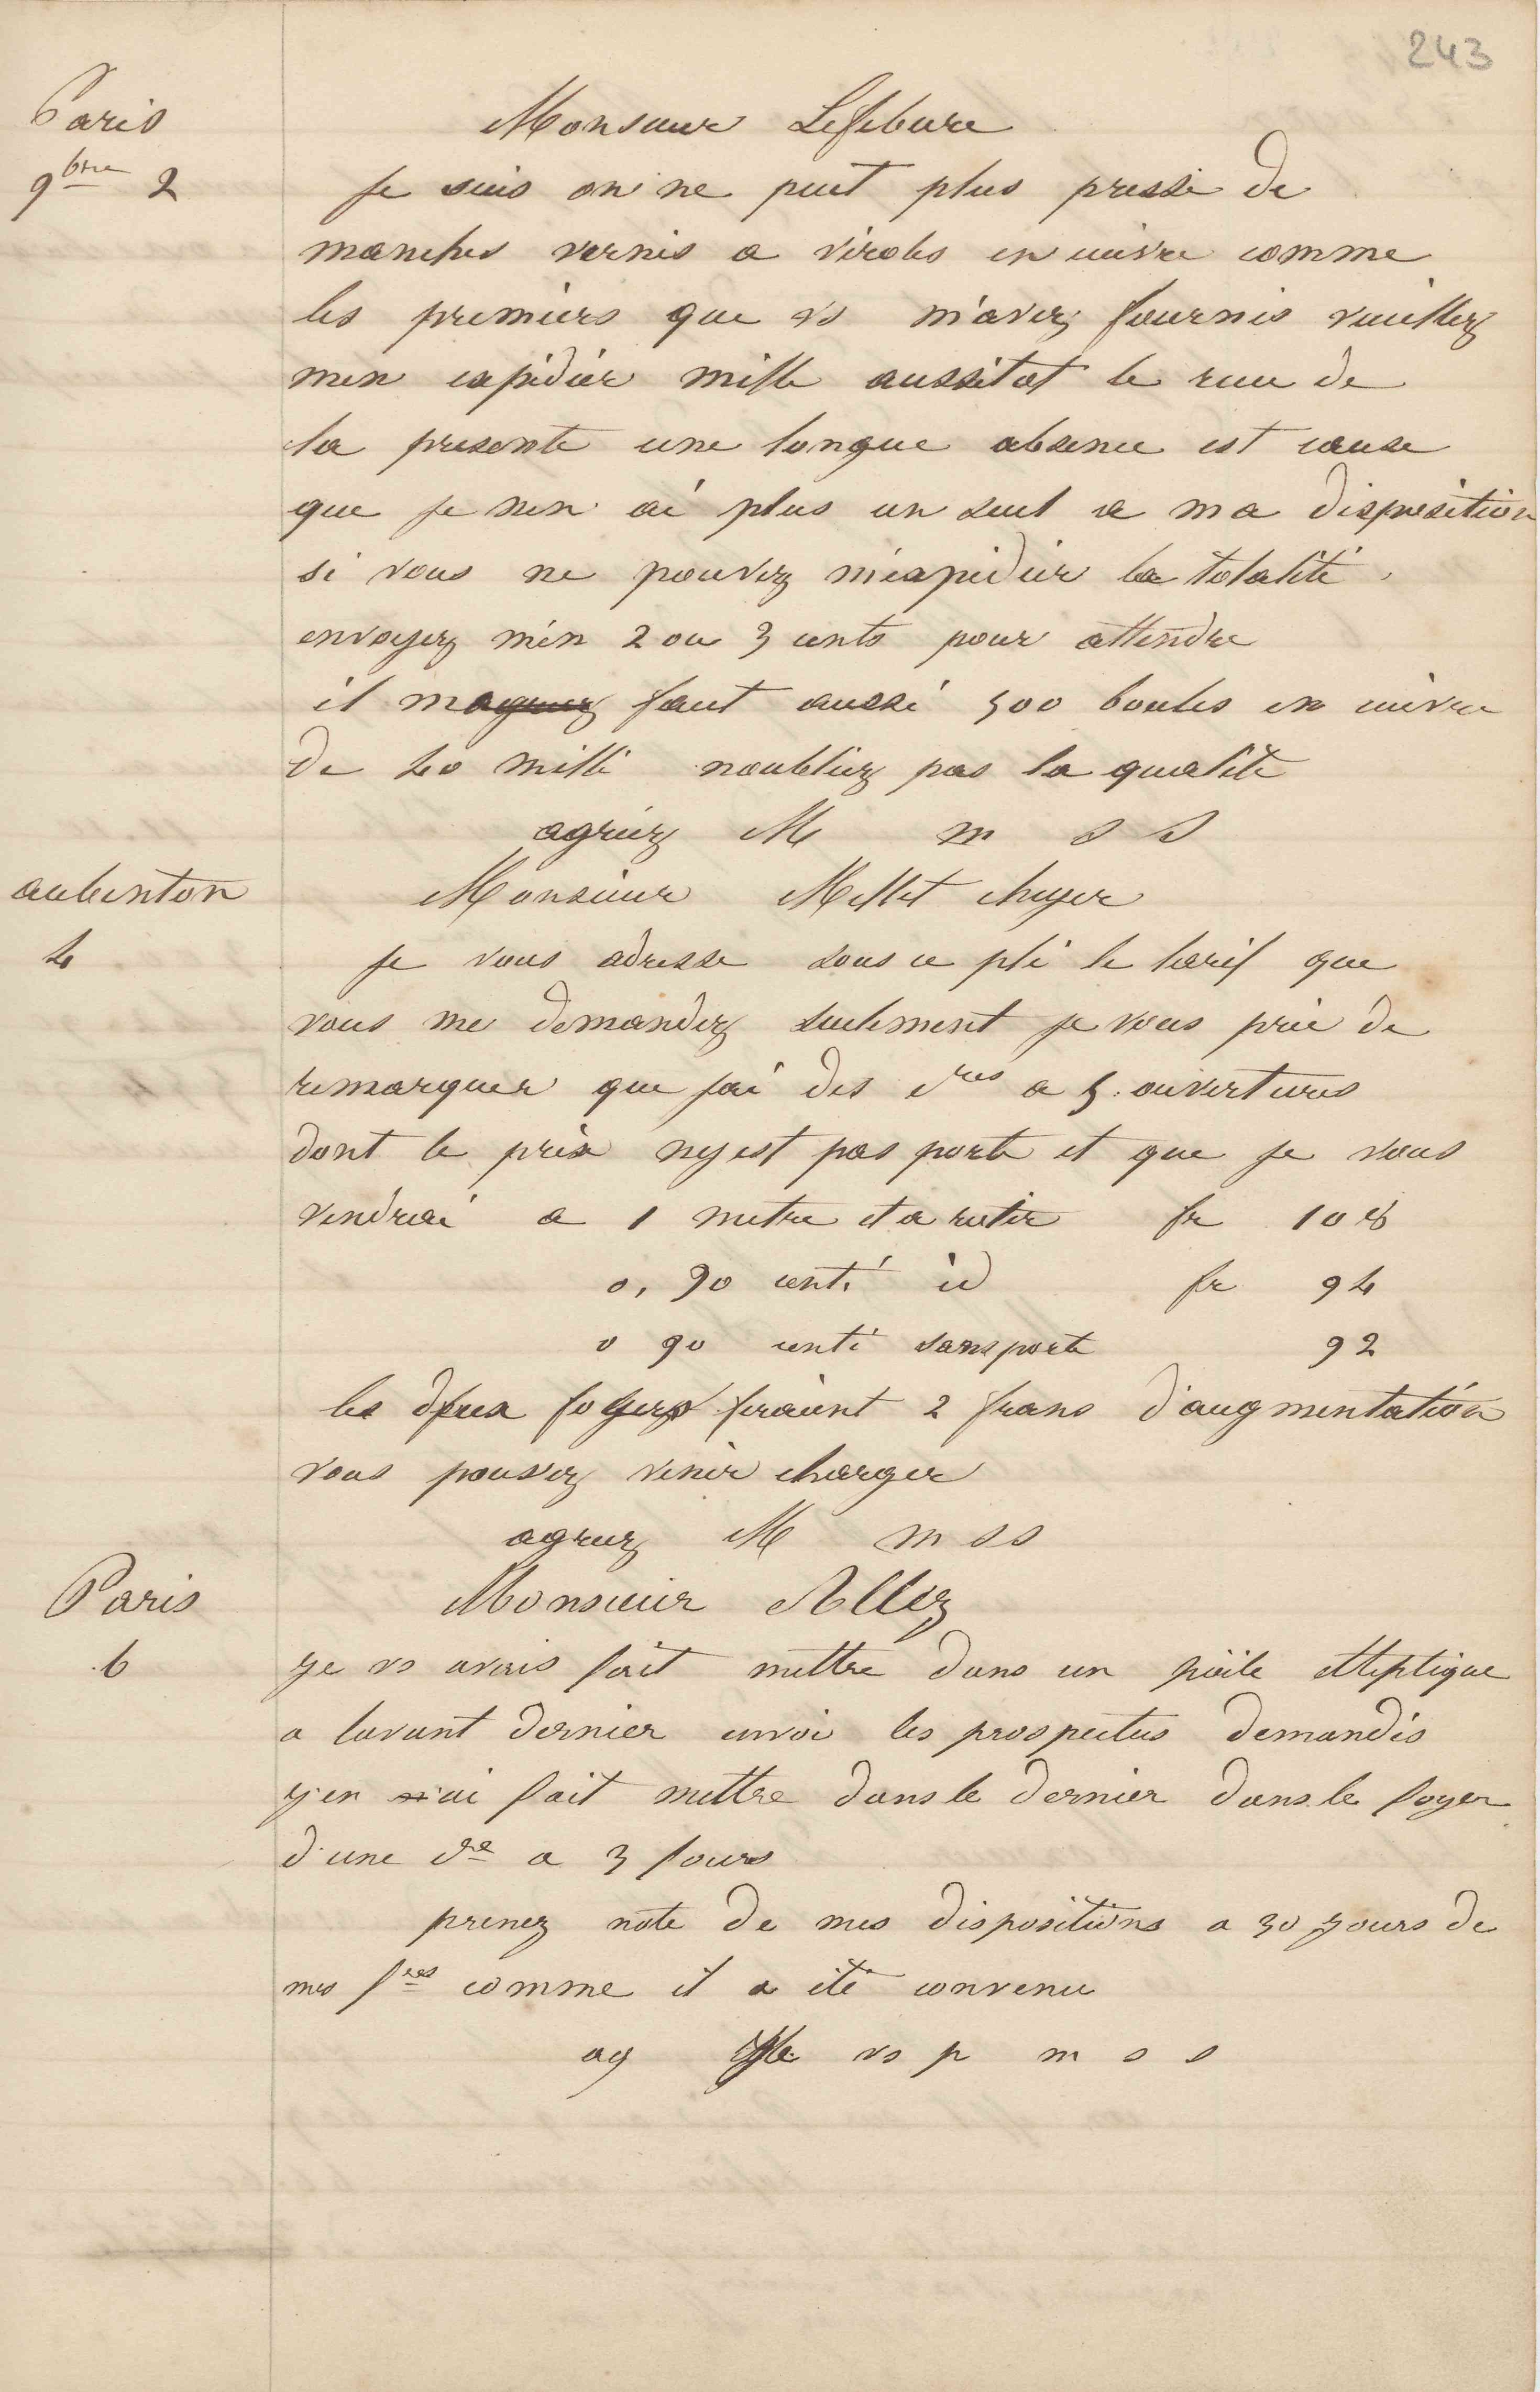 243
Paris
9bre 2
Monsieur Lefebure
Je suis on ne peut plus pressé de
manches vernis a viroles en cuivre comme
les premiers que vs m'avez fournis veuillez
men expédier mille aussitot le recu de
la presente une longue absence est cause
que je nen ai plus un seul a ma disposition
si vous ne pouvez m'expedier la totalité
envoyez m'en 2 ou 3 cents pour attendre
il m faut aussi 500 boules en cuivre
de 40 milli noubliez pas la qualité
agréez M m s s
aubenton
4
Monsieur Millet
Je vous adresse sous ce pli le tarif que
vous me demandez seulement je vous prie de
remarquer que jai des cres a 5 ouvertures
dont le prix ny est pas porté et que je vous
vendrai a 1 metre et a rotir fr 108
0,90 centi id fr 94
0 90 centi sans porte 92
les deux foyers feraient 2 frans d'augmentation
vous pouvez venir charger
agreez M m s s
Paris
6
Monsieur Allez
Je vs avais fait mettre dans un poële elleptique
a lavant dernier envoi les prospectus demandés
j'en ai fait mettre dans le dernier dans le foyer
d'une cre a 3 fours
prenez note de mes dispositions a 30 jours de
mes fres comme il a été convenu
ag vs p m s s